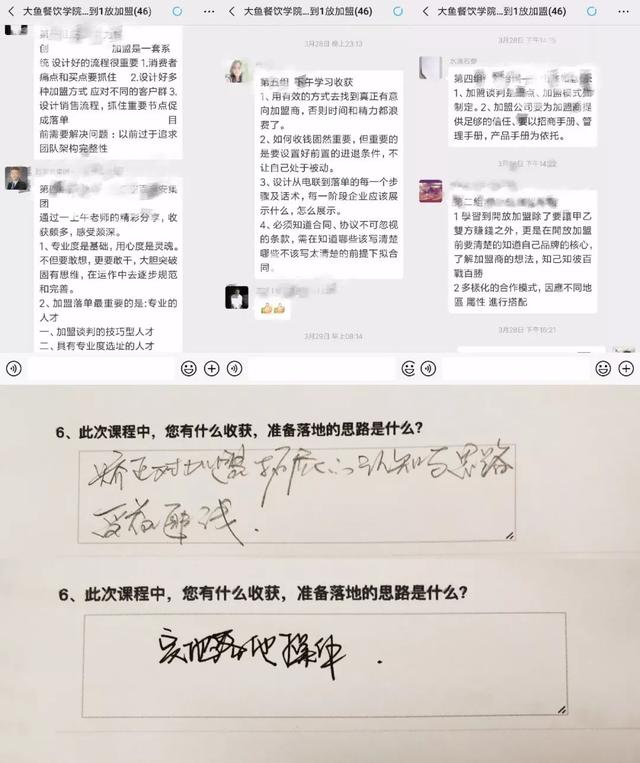 大鱼餐饮学院...到1放加盟(46)
创 加盟是一套系
统 设计好的流程很重要 1.消费者
痛点和买点要抓住 2.设计好多
种加盟方式 应对不同的客户群 3.
设计销售流程，抓住重要节点促
成落单 目
前需要解决问题：以前过于追求
团队架构完整性
团
通过一上午老师的精彩分享，收
获颇多，感受颇深。
1、专业度是基础，用心度是灵魂。
不但要敢想，更要敢干，大胆突破
固有思维，在运作中去逐步规范
和完善。
2、加盟落单最重要的是:专业的
人才
一、加盟谈判的技巧型人才
二、具有专业度选址的人才
大鱼餐饮学院...到1放加盟(46)
3月28日 晚上23:13
第五组 下午学习收获
1、用有效的方式去找到真正有意
向加盟商，否则时间和精力都浪
费了。
2、如何收钱固然重要，但重要的
是要设置好前置的进退条件，不
让自己处于被动。
3、设计从电联到落单的每一个步
骤及话术，每一阶段企业应该展
示什么，怎么展示。
4、必须知道合同、协议不可忽视
的条款，需在知道哪些该写清楚
哪些不该写太清楚的前提下拟合
同。
👍👍
3月29日 早上08:14
大鱼餐饮学院...到1放加盟(46)
3月28日 下午14:15
第四组
1、加盟谈判是
制定。2、加盟公司要为加盟商提
供足够的信任、要以招商手册、管
理手册，产品手册为依托。
下午14:22
第二组
1 學習到開放加盟除了要讓甲乙
雙方賺錢之外，更是在開放加盟
前要清楚的知道自己品牌的核心，
了解加盟商的想法，知己知彼百
戰百勝
2 多樣化的合作模式，因應不同地
區 屬性 進行搭配
3月28日 下午16:21
6、此次课程中，您有什么收获，准备落地的思路是什么？
矫正对加盟拓展的认知与思路
受益匪浅.
6、此次课程中，您有什么收获，准备落地的思路是什么？
实地落地操作.